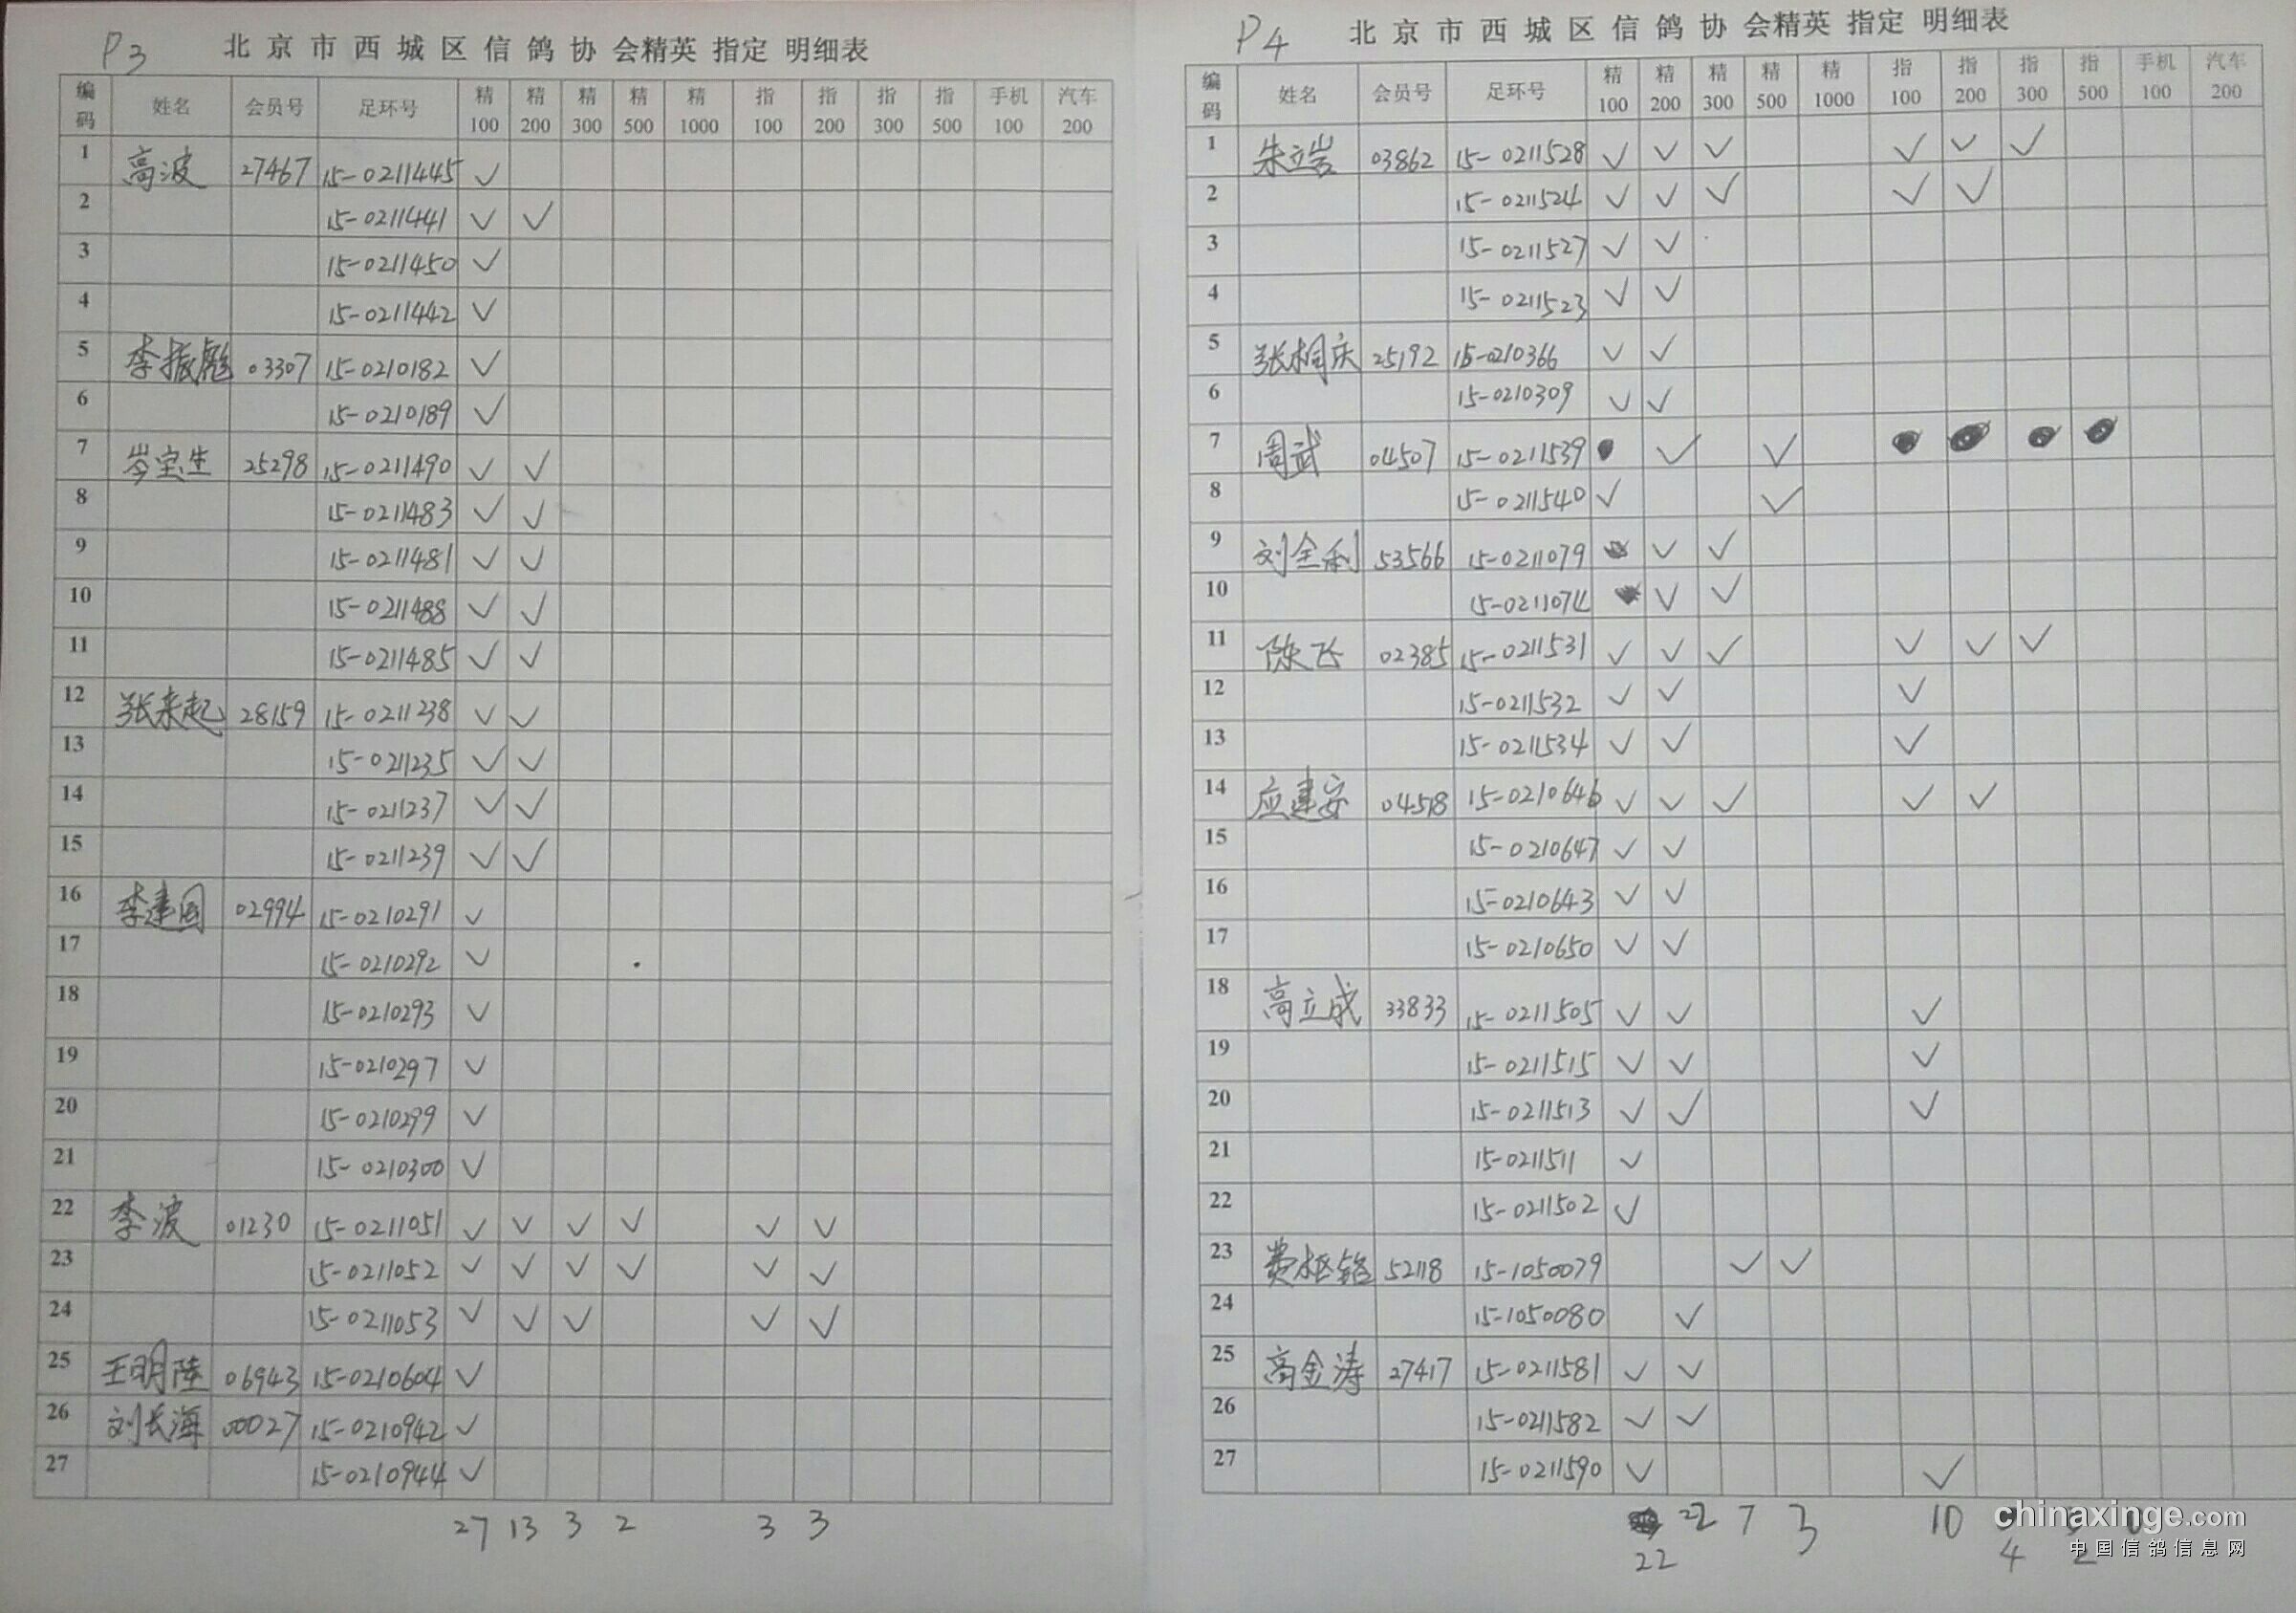 P3
北京市西城区信鸽协会精英 指定 明细表
编码 姓名 会员号 足环号 精100 精200 精300 精500 精1000 指100 指200 指300 指500 手机100 汽车200
1 高波 27467 15-0211445 ✓
2 15-0211441 ✓ ✓
3 15-0211450 ✓
4 15-0211442 ✓
5 李振彪 03307 15-0210182 ✓
6 15-0210189 ✓
7 岑宝生 25298 15-0211490 ✓ ✓
8 15-0211483 ✓ ✓
9 15-0211481 ✓ ✓
10 15-0211488 ✓ ✓
11 15-0211485 ✓ ✓
12 张来起 28159 15-0211238 ✓ ✓
13 15-0211235 ✓ ✓
14 15-0211237 ✓ ✓
15 15-0211239 ✓ ✓
16 李建国 02994 15-0210291 ✓
17 15-0210292 ✓
18 15-0210293 ✓
19 15-0210297 ✓
20 15-0210299 ✓
21 15-0210300 ✓
22 李波 01230 15-0211051 ✓ ✓ ✓ ✓ ✓ ✓
23 15-0211052 ✓ ✓ ✓ ✓ ✓ ✓
24 15-0211053 ✓ ✓ ✓ ✓ ✓
25 王明陆 06943 15-0210604 ✓
26 刘长海 00027 15-0210942 ✓
27 15-0210944 ✓
27 13 3 2 3 3
P4
北京市西城区信鸽协会精英 指定 明细表
编码 姓名 会员号 足环号 精100 精200 精300 精500 精1000 指100 指200 指300 指500 手机100 汽车200
1 朱立岩 03862 15-0211528 ✓ ✓ ✓ ✓ ✓ ✓
2 15-0211524 ✓ ✓ ✓ ✓ ✓
3 15-0211527 ✓ ✓
4 15-0211523 ✓ ✓
5 张桐庆 25192 15-0210366 ✓ ✓
6 15-0210309 ✓ ✓
7 周武 04507 15-0211539 ✓ ✓
8 15-0211540 ✓ ✓
9 刘全利 53566 15-0211079 ✓ ✓
10 15-0211074 ✓ ✓
11 陈飞 02385 15-0211531 ✓ ✓ ✓ ✓ ✓ ✓
12 15-0211532 ✓ ✓ ✓
13 15-0211534 ✓ ✓ ✓
14 应建安 04518 15-0210646 ✓ ✓ ✓ ✓ ✓
15 15-0210647 ✓ ✓
16 15-0210643 ✓ ✓
17 15-0210650 ✓ ✓
18 高立成 33833 15-0211505 ✓ ✓ ✓
19 15-0211515 ✓ ✓ ✓
20 15-0211513 ✓ ✓ ✓
21 15-0211511 ✓
22 15-0211502 ✓
23 费 52118 15-1050079 ✓ ✓
24 15-1050080 ✓
25 高金涛 27417 15-0211581 ✓ ✓
26 15-0211582 ✓ ✓
27 15-0211590 ✓ ✓
22 7 3 10
22 4 2
chinaxinge.com
中国信鸽信息网